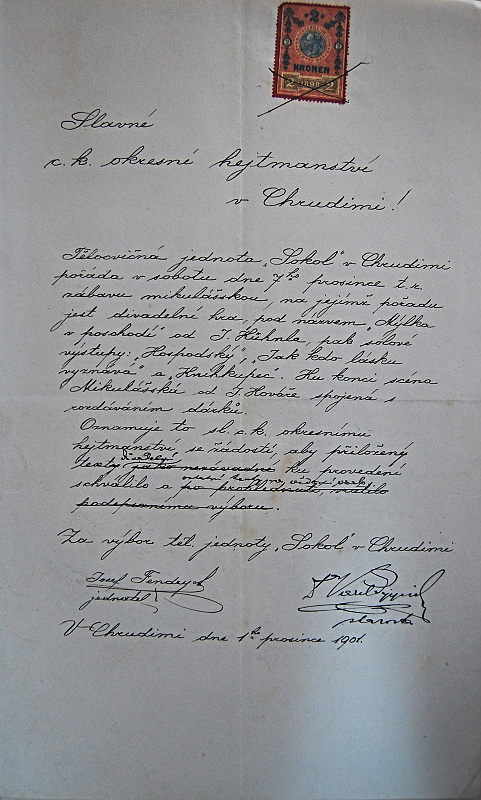 2
KRONEN
2 1898 2
Slavné
c. k. okresné hejtmanství
v Chrudimi!
Tělocvičná jednota „Sokol“ v Chrudimi
pořádá v sobotu dne 7ho prosince t. r.
zábavu mikulášskou, na jejímž pořadu
jest divadelní hra, pod názvem „Mýlka
v poschodí“ od J. Kühnla, pak solové
výstupy: „Hospodský“, „Jak kdo lásku
vyznává“ a „Knihkupec“. Ku konci scéna
Mikulášská od J. Kováře spojená s
rozdáváním dárků.
Oznamuje to sl. c. k. okresnímu
hejtmanství se žádostí, aby přiložený
texty jako nenávadné ku provedení
schválilo a po prohlednutí, vrátilo
podepsanému výboru.
Za výbor těl. jednoty „Sokol“ v Chrudimi
Josef
jednatel
starosta
V Chrudimi dne 1ho prosince 1901.